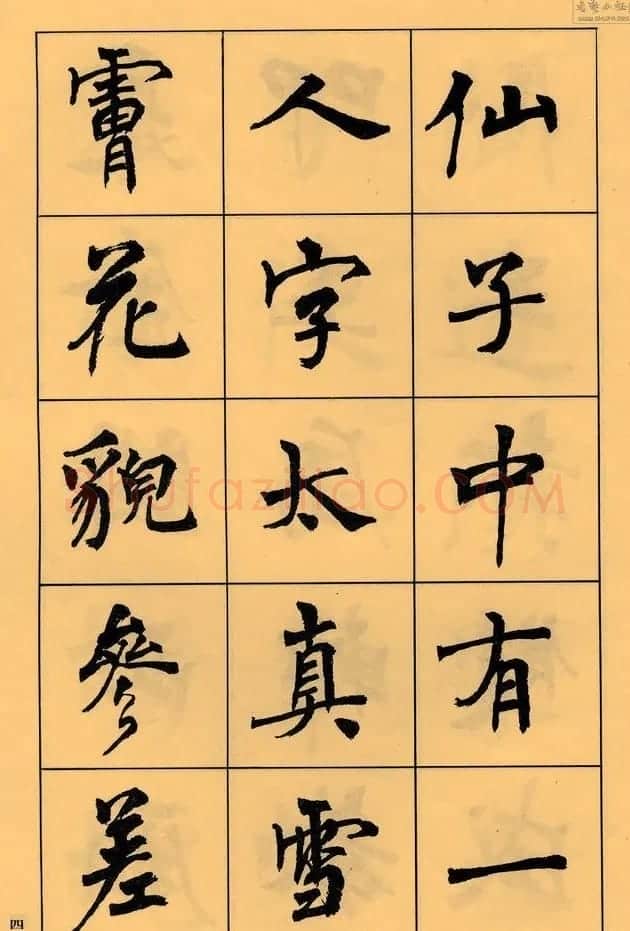 仙子中有一
人字太真雪
膚花貌參差
四
shufaziliao.COM